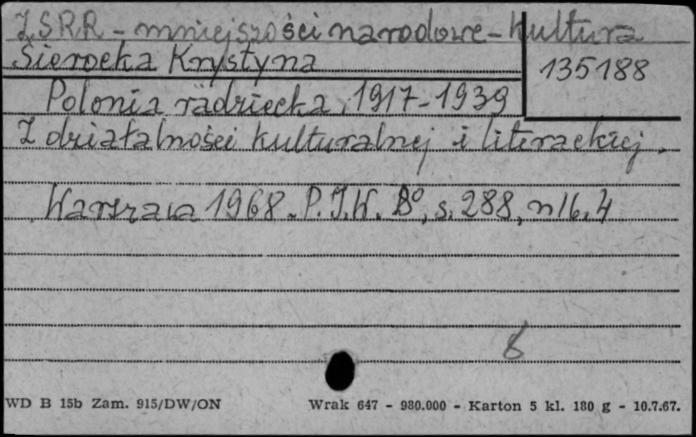 ZSRR - mniejszości narodowe - kultura
Sierocka Krystyna
135188
Polonia radziecka, 1917-1939
Z działalności kulturalnej i literackiej.
Warszawa 1968. P.I.W. 8°, s. 288, nlb. 4
8
WD B 15b Zam. 915/DW/ON
Wrak 647 - 980.000 - Karton 5 kl. 180 g - 10.7.67.